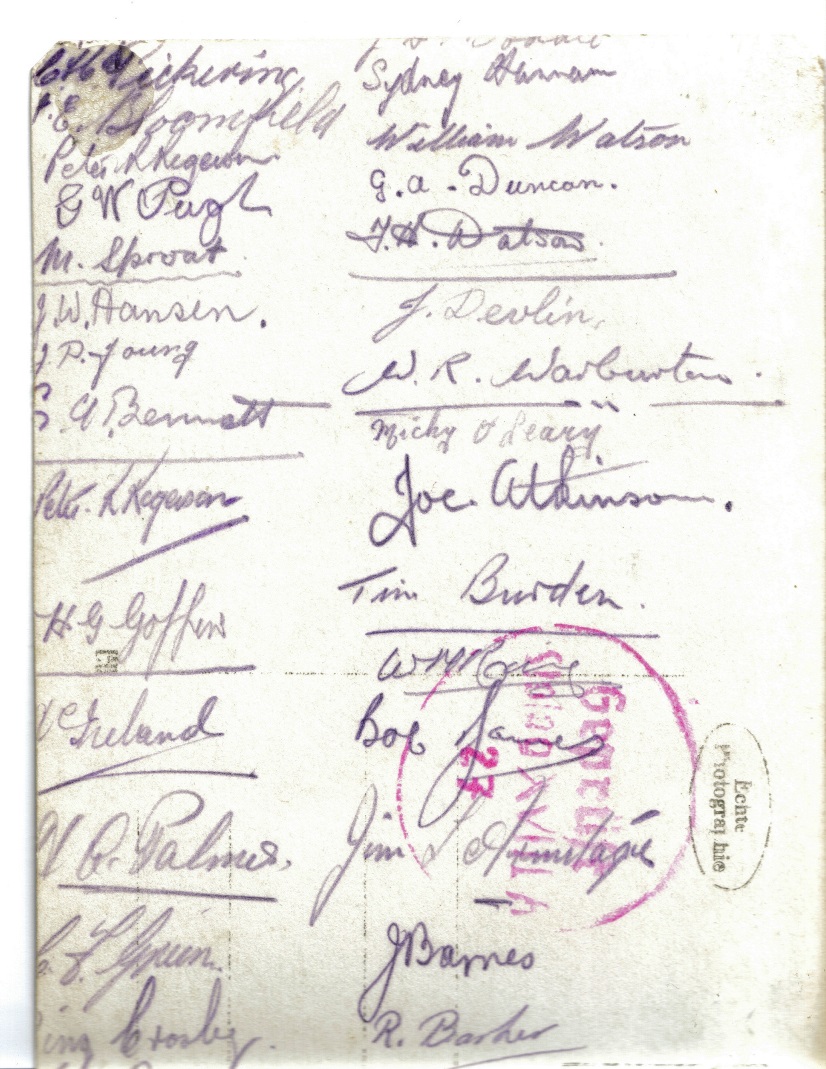 Pickering
Bloomfield
Peter L Kegerson
E W Pugh
M. Sproat
J.W. Hansen.
J.D. Young
Bennett
Peter L Kegerson
H G Goffin
Ireland
Palmer.
Green.
Crosby.
Sydney Hannam
William Watson
G.A. Duncan.
F.H. Watson.
J. Devlin.
W. R. Warburton.
Micky O'Leary
Joe Atkinson.
Tim Burden.
Bob James
Jim L Armitage
J Barnes
R. Barker
Geprüft
Stalag XVIIIA
27
Echte
Photographie